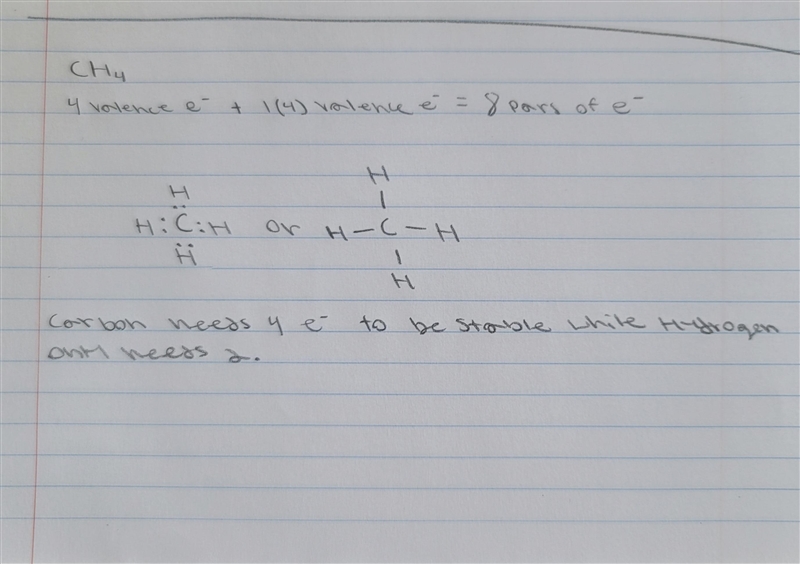 CH₄
4 valence e⁻ + 1(4) valence e⁻ = 8 pars of e⁻
H
H
H:C:H or H—C—H
H
H
Carbon needs 4 e⁻ to be stable while Hydrogen
only needs 2.